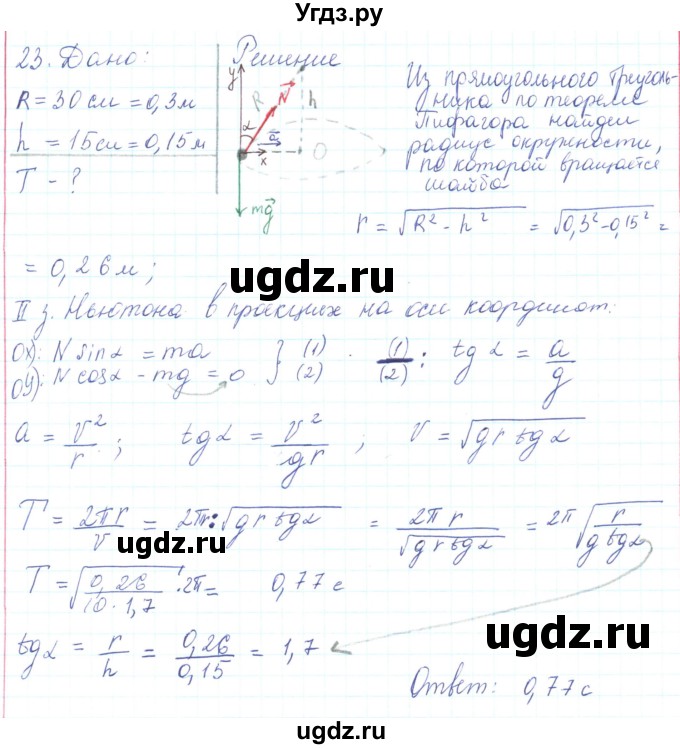 Угдз.ру
23. Дано:
R = 30 см = 0,3 м
h = 15 см = 0,15 м
T - ?
Решение
y
R
N
h
α
a
x
O
mg
Из прямоугольного треуголь-
ника по теореме
Пифагора найдем
радиус окружности,
по которой вращается
шайба
r = √(R² - h²) = √(0,3² - 0,15²) =
= 0,26 м;
II з. Ньютона в проекциях на оси координат:
OX): N sinα = ma } (1)
OY): N cosα - mg = 0 } (2)
(1)/(2): tgα = a/g
a = v²/r ; tgα = v²/gr ; v = √(gr tgα)
T = 2πr/v = 2πr : √(gr tgα) = 2πr/√(gr tgα) = 2π√(r/(g tgα))
T = √(0,26/(10·1,7)) · 2π = 0,77 с
tgα = r/h = 0,26/0,15 = 1,7
Ответ: 0,77 с
ugdz.ru
ugdz.ru
ugdz.ru
ugdz.ru
ugdz.ru
ugdz.ru
ugdz.ru